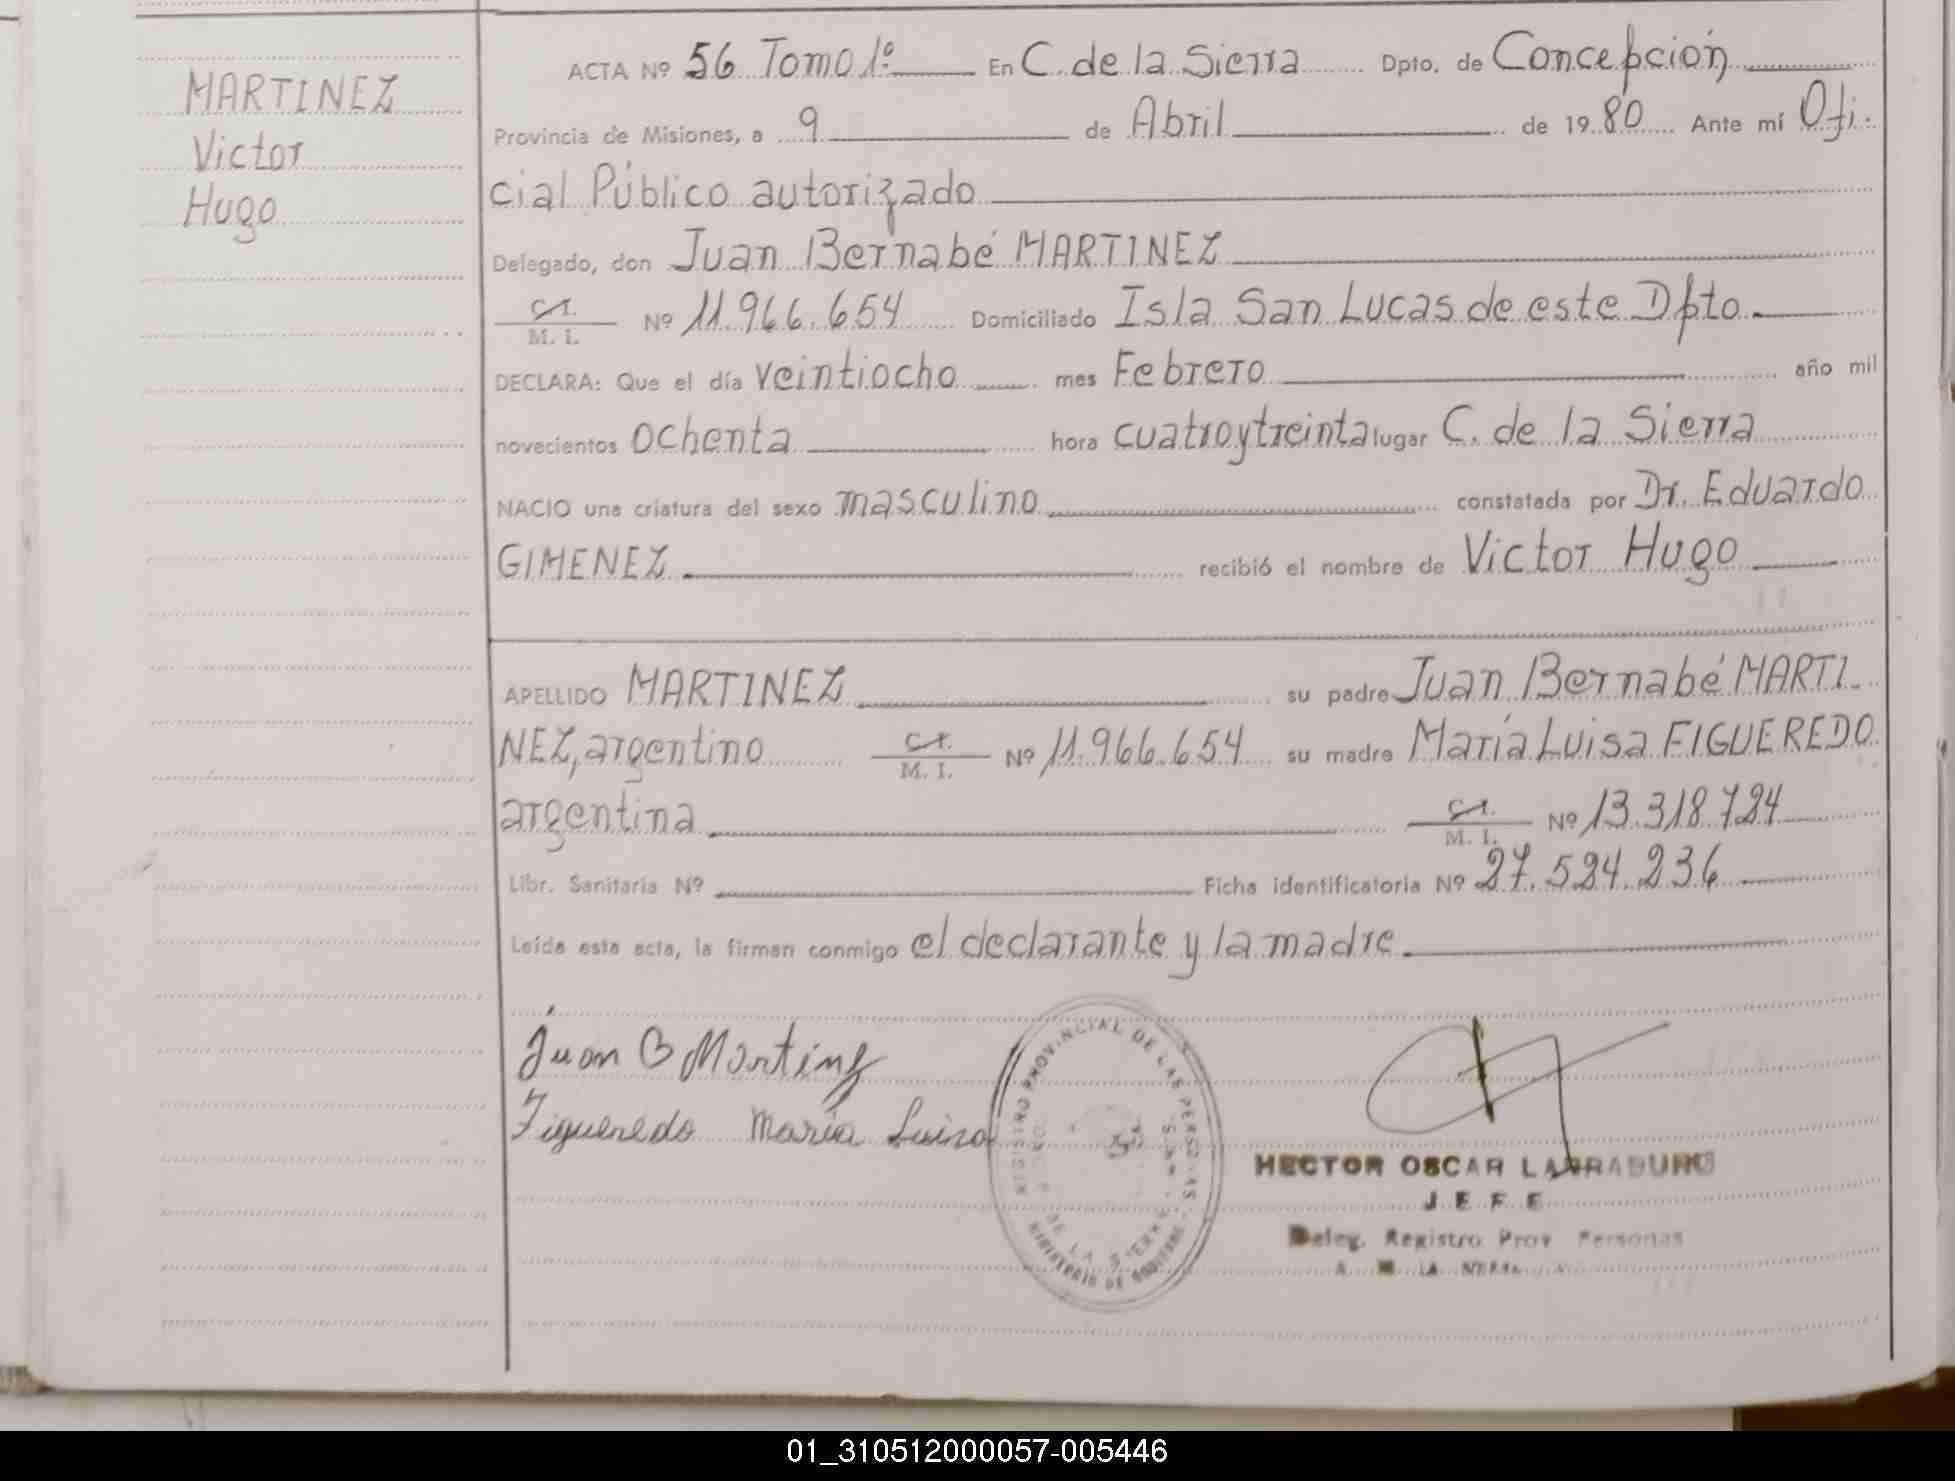 MARTINEZ
Victor
Hugo
ACTA Nº 56 Tomo 1º. En C. de la Sierra Dpto. de Concepción
Provincia de Misiones, a 9 de Abril de 1980 Ante mí Ofi-
cial Público autorizado
Delegado, don Juan Bernabé MARTINEZ
C.I.
M. I. Nº 11.966.654 Domiciliado Isla San Lucas de este Dpto.
DECLARA: Que el día veintiocho mes Febrero año mil
novecientos ochenta hora cuatro y treinta lugar C. de la Sierra
NACIO una criatura del sexo masculino constatada por Dr. Eduardo
GIMENEZ recibió el nombre de Victor Hugo
APELLIDO MARTINEZ su padre Juan Bernabé MARTI-
NEZ, argentino C.I. M. I. Nº 11.966.654 su madre María Luisa FIGUEREDO
argentina C.I. M. I. Nº 13.318.724
Libr. Sanitaria Nº Ficha identificatoria Nº 27.524.236
Leída esta acta, la firman conmigo el declarante y la madre
Juan B Martinez
Figueredo María Luisa
REGISTRO PROVINCIAL DE LAS PERSONAS
DE LA SIERRA
MINISTERIO DE GOBIERNO
HECTOR OSCAR LARRABURU
JEFE
Deleg. Registro Prov Personas
LA SIERRA
01_310512000057-005446